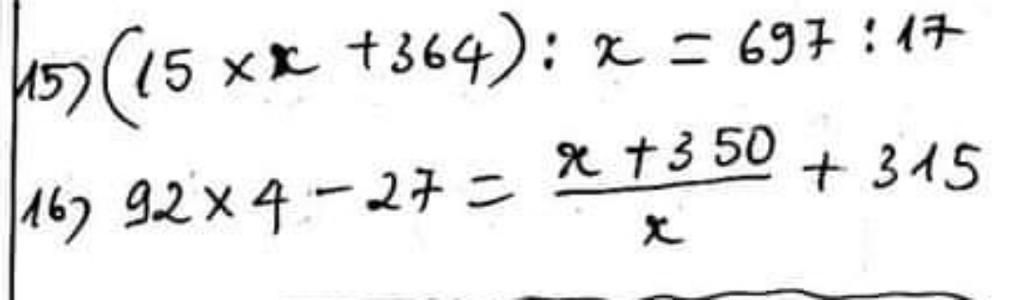 15) (15 × x + 364) : x = 697 : 17
16) 92 × 4 - 27 = \frac{x + 350}{x} + 315